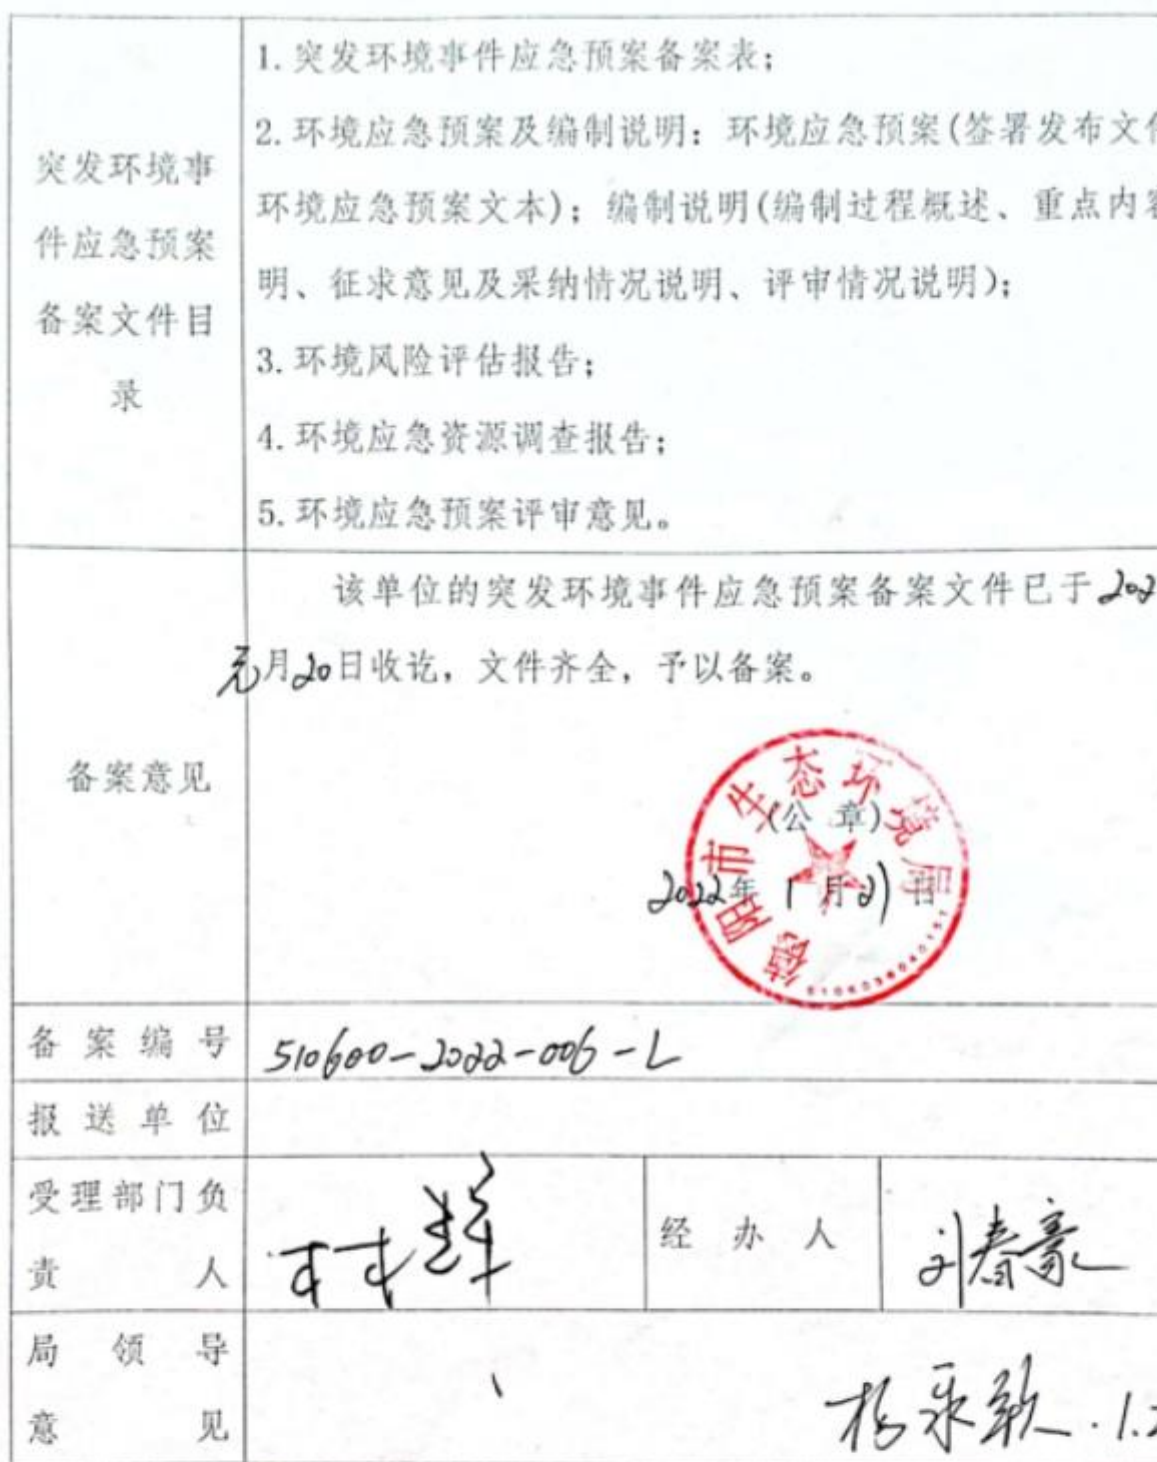 突发环境事
件应急预案
备案文件目
录
1.突发环境事件应急预案备案表;
2.环境应急预案及编制说明:环境应急预案(签署发布文件
环境应急预案文本);编制说明(编制过程概述、重点内容
明、征求意见及采纳情况说明、评审情况说明);
3.环境风险评估报告;
4.环境应急资源调查报告;
5.环境应急预案评审意见。
备案意见
该单位的突发环境事件应急预案备案文件已于202
元月20日收讫,文件齐全,予以备案。
德阳市生态环境局
(公 章)
2022年 1月21日
备案编号
510600-2022-006-L
报送单位
受理部门负
责 人
林
经 办 人
刘春豪
局 领 导
意 见
杨 1.2